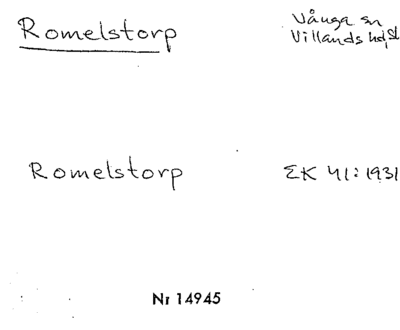 Romelstorp
Vånga sn
Villands hd, Sk
Romelstorp
EK 41:1931
Nr 14945